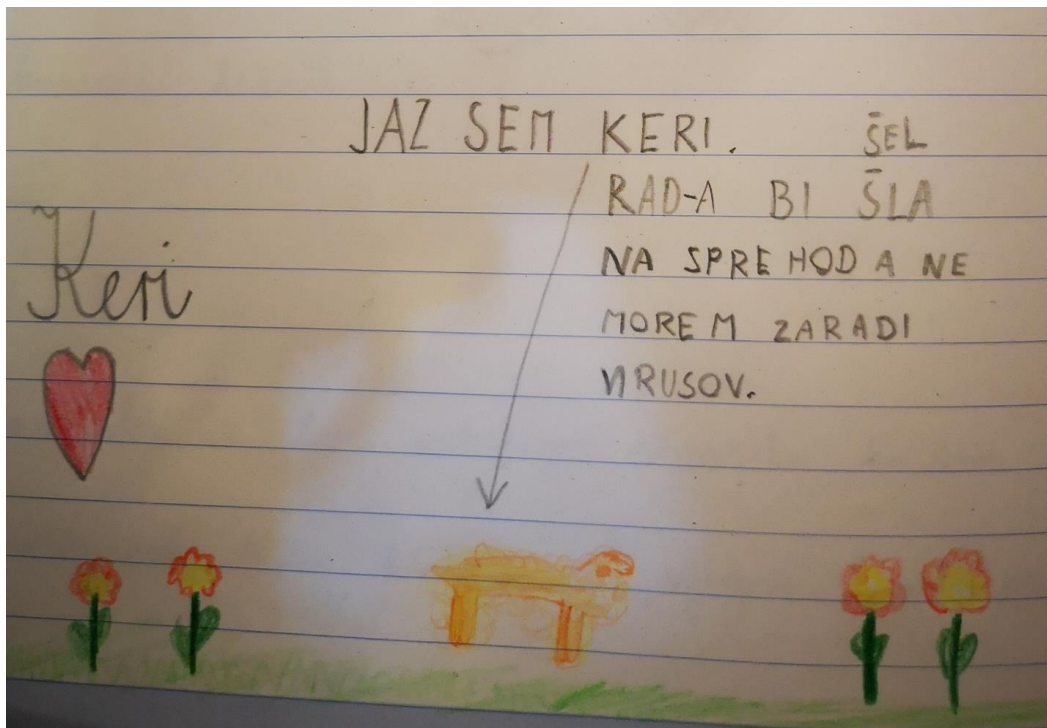 JAZ SEM KERI. ŠEL
RAD-A BI ŠLA
NA SPREHOD A NE
MOREM ZARADI
VIRUSOV.
Keri